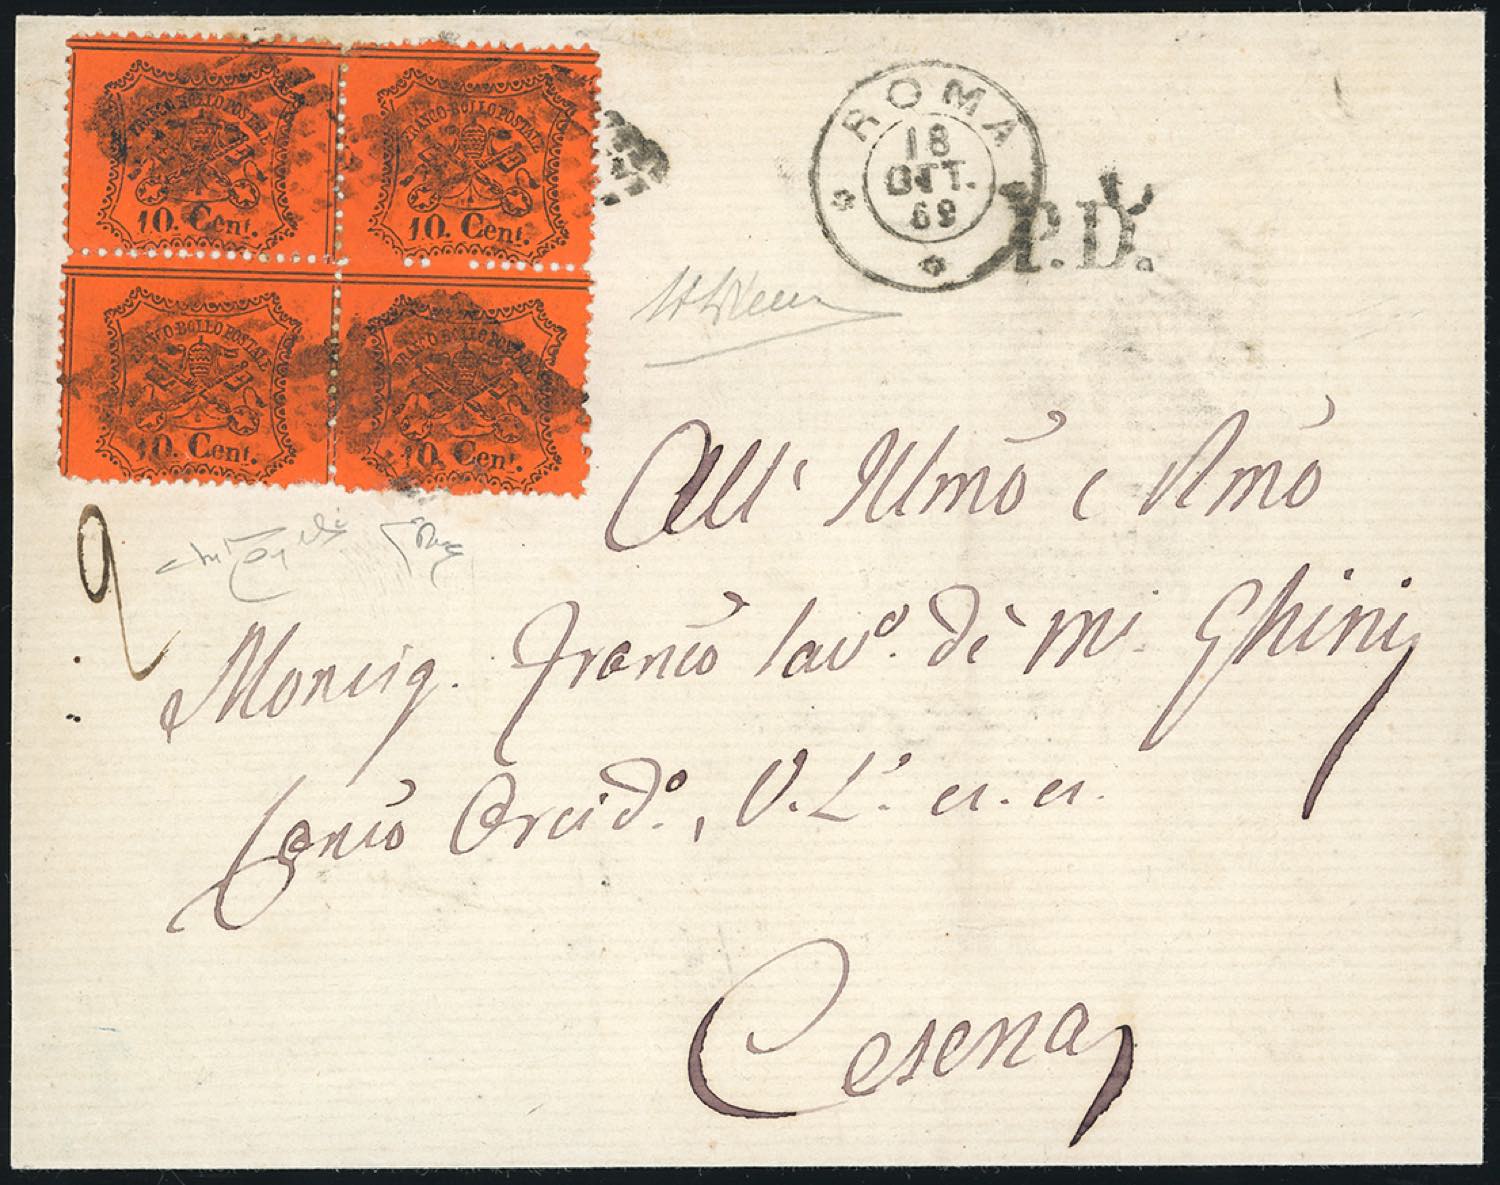 FRANCO-BOLLO POSTALE
10. Cent.
FRANCO-BOLLO POSTALE
10. Cent.
FRANCO-BOLLO POSTALE
10. Cent.
FRANCO-BOLLO POSTALE
10. Cent.
ROMA
18
OTT.
69
P.D.
All' Illmõ e Rmõ
Monsig. Francõ Cavº. de Mi. Ghini
Cancõ Arcidº., V. Lº. es. es.
Cesena